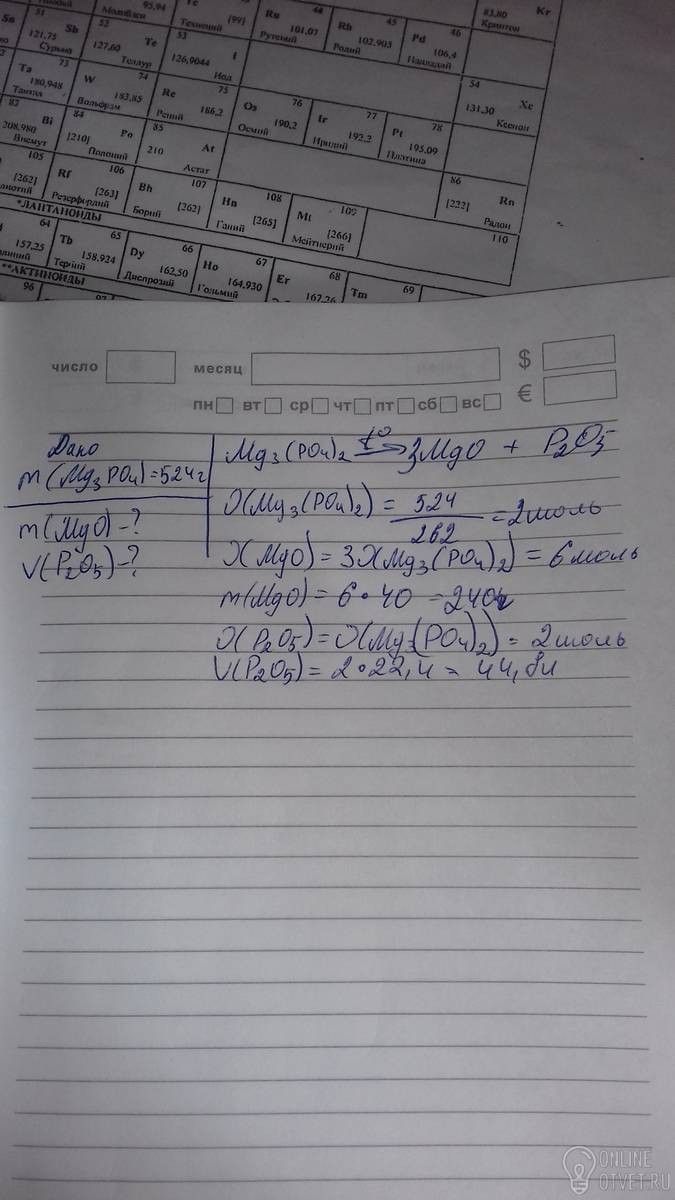 51 Sb 121,75 Сурьма
52 Te 127,60 Теллур
53 I 126,9044 Иод
44 Ru 101,07 Рутений
45 Rh 102,905 Родий
46 Pd 106,4 Палладий
83,80 Kr Криптон
95,94 Молибден
[99] Технеций
73 Ta 180,948 Тантал
74 W 183,85 Вольфрам
75 Re 186,2 Рений
76 Os 190,2 Осмий
77 Ir 192,2 Иридий
78 Pt 195,09 Платина
54 Xe 131,30 Ксенон
83 Bi 208,980 Висмут
84 Po [210] Полоний
85 At 210 Астат
86 Rn [222] Радон
105 [262]
106 Rf [263] Резерфордий
107 Bh [262] Борий
108 Hn [265] Ганий
109 Mt [266] Мейтнерий
110
*ЛАНТАНОИДЫ
64 157,25
65 Tb 158,924 Тербий
66 Dy 162,50 Диспрозий
67 Ho 164,930 Гольмий
68 Er 167,26
69 Tm
**АКТИНОИДЫ
96 97
число месяц $
€
пн вт ср чт пт сб вс
Дано
m(Mg3PO4)=524г
m(MgO)-?
V(P2O5)-?
Mg3(PO4)2 t° → 3MgO + P2O5
υ(Mg3(PO4)2) = 524/262 = 2моль
υ(MgO) = 3υ(Mg3(PO4)2) = 6моль
m(MgO) = 6·40 = 240г
υ(P2O5) = υ(Mg3(PO4)2) = 2моль
V(P2O5) = 2·22,4 = 44,8л
ONLINE
OTVET.RU